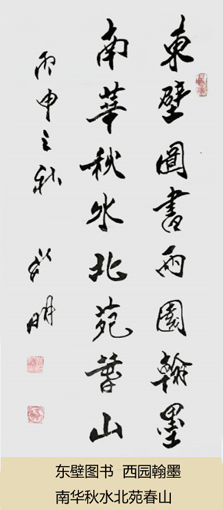 東壁圖書西園翰墨
南華秋水北苑春山
丙申之秋
明
东壁图书 西园翰墨
南华秋水北苑春山